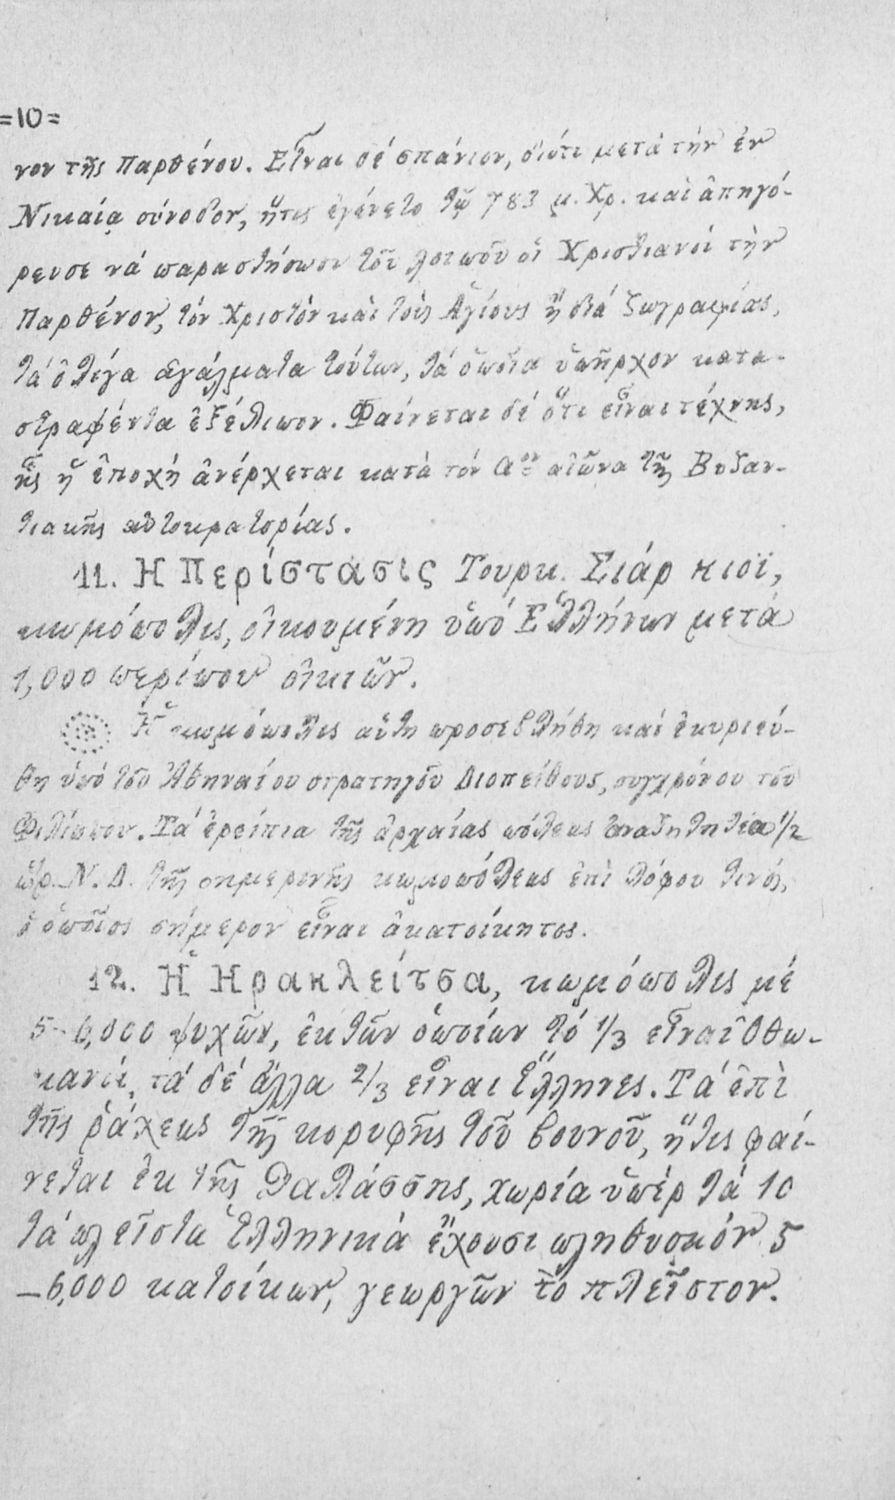 =10=
νον τῆς Παρθένου. Εἶναι δέ σπάνιον, διότι μετά τήν ἐν
Νικαίᾳ σύνοδον, ἥτις ἐγένετο τῷ 783 μ. Χρ. καί ἀπηγό-
ρευσε νά παραστήσωσι τοῦ λοιποῦ οἱ Χριστιανοί τὴν
Παρθένον, τόν Χριστόν καί τούς Ἁγίους ἤ διά ζωγραφίας,
τά ὀλίγα ἀγάλματα τούτων, τά ὁποῖα ὑπῆρχον κατα-
στραφέντα ἐξέλιπον. Φαίνεται δέ ὅτι εἶναι τέχνης,
ἧς ἡ ἐποχή ἀνέρχεται κατά τόν Αον αἰῶνα τῆς Βυζαν-
τιακῆς αὐτοκρατορίας.
11. Η Περίστασις Τουρκ. Σιάρ κιοϊ,
κωμόπολις, οἰκουμένη ὑπό Ἑλλήνων μετά
1,000 περίπου οἰκιῶν.
Ἡ κωμόπολις αὕτη προσεβλήθη καί ἐκυριεύ-
θη ὑπό τοῦ Ἀθηναίου στρατηγοῦ Διοπείθους, συγχρόνου τοῦ
Φιλίππου. Τά ἐρείπια τῆς ἀρχαίας πόλεως ἀναζητητέα 1/2
ὥρ. Ν. Δ. τῆς σημερινῆς κωμοπόλεως ἐπί λόφου τινός,
ὁ ὁποῖος σήμερον εἶναι ἀκατοίκητος.
12. Ἡ Ηρακλείτσα, κωμόπολις μέ
5–6,000 ψυχῶν, ἐκ τῶν ὁποίων τό 1/3 εἶναι Ὀθω-
μανοί, τά δέ ἄλλα 2/3 εἶναι Ἕλληνες. Τά ἐπί
τῆς ῥάχεως τῆς κορυφῆς τοῦ βουνοῦ, ἥτις φαί-
νεται ἐκ τῆς θαλάσσης, χωρία ὑπέρ τά 10
τά πλεῖστα Ἑλληνικά ἔχουσι πληθυσμόν 5
–6,000 κατοίκων, γεωργῶν τὸ πλεῖστον.